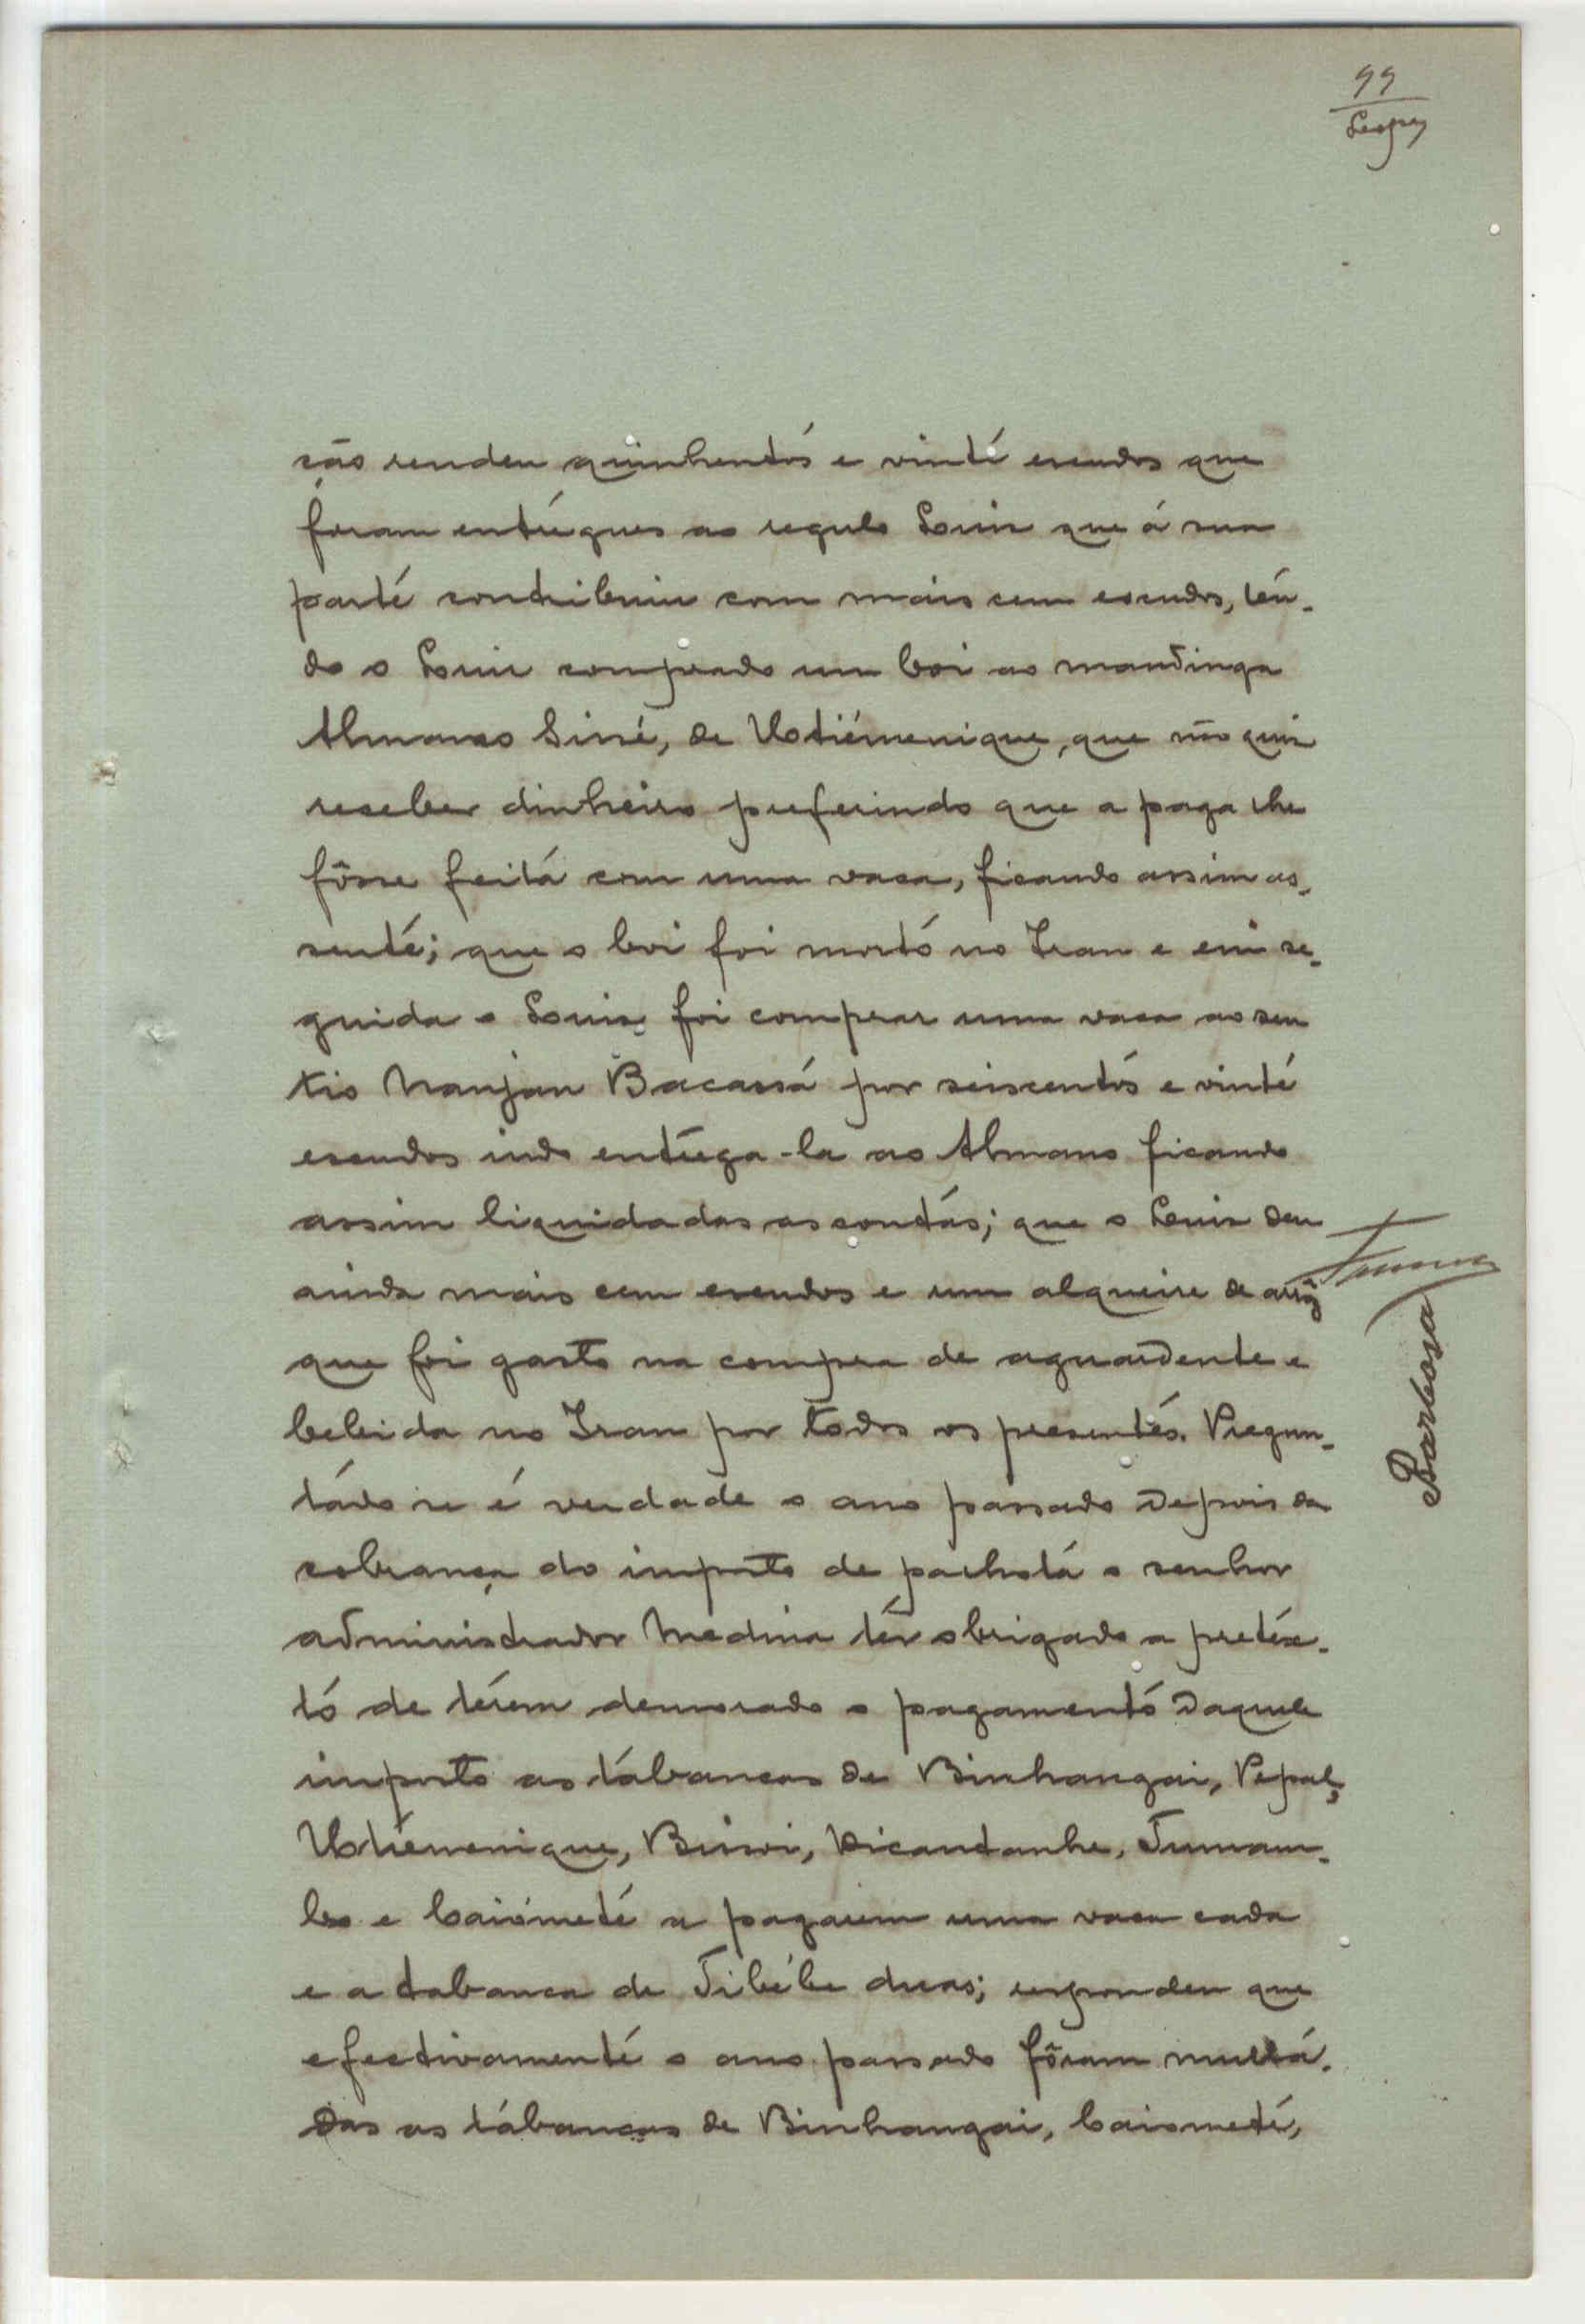 99
Lopes
ção rendeu quinhentos e vinte escudos que
fôram entregues ao regulo Louis que á sua
parte contribuiu com mais cem escudos, ten-
do o Louis comprado um boi ao mandinga
Almamo Siné, de Utiémenique, que não quis
receber dinheiro preferindo que a paga lhe
fôsse feita com uma vaca, ficando assim as-
sente; que o boi foi morto no Iran e em se-
guida o Louis foi comprar uma vaca ao seu
tio Nanjan Bacassá por seiscentos e vinte
escudos indo entrega-la ao Almamo ficando
assim liquidadas as contas; que o Louis deu
ainda mais cem escudos e um alqueire de
que foi gasto na compra de aguardente e
bebida no Iran por todos os presentes. Pregun-
tado se é verdade o ano passado depois da
cobrança do imposto de palhota o senhor
administrador Medina ter obrigado a pretex-
to de terem demorado o pagamento daquele
imposto as tabancas de Binhangai, Pepal,
Utiémenique, Bissoi, Bicandanhe, Tumam-
bo e Caiómeté a pagarem uma vaca cada
e a tabanca de Tibébe duas; respondeu que
efectivamente o ano passado fôram multa-
das as tabancas de Binhangai, Caiometé,
Barbosa